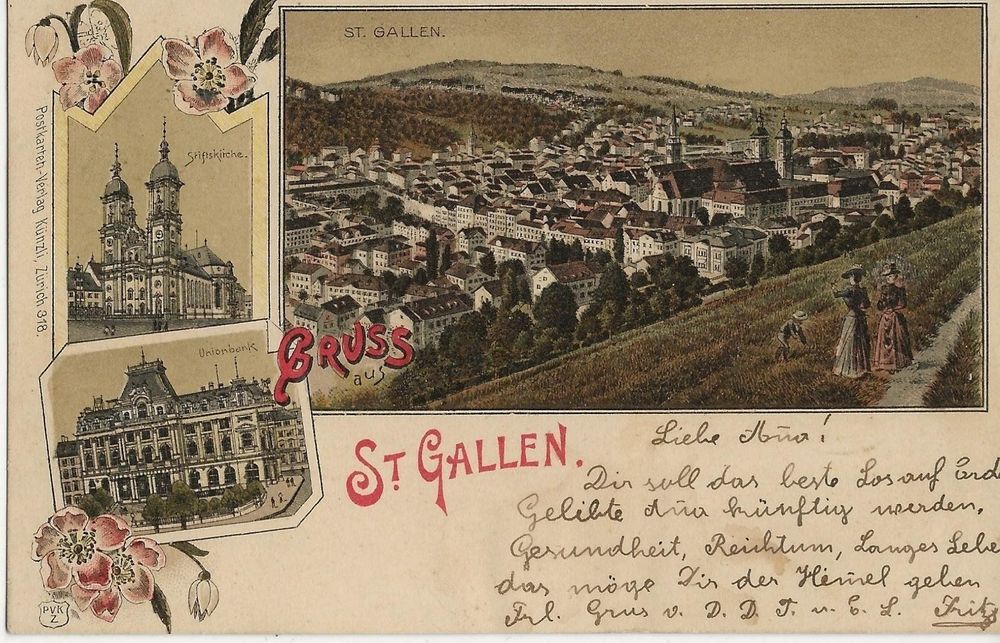 ST. GALLEN.
Stiftskirche.
Unionbank
Postkarten-Verlag Künzli, Zürich 318.
GRUSS
aus
ST GALLEN.
PVK
Z
Liebe Aña!
Dir soll das beste Los auf
Gelibte Aña künftig werden,
Gesundheit, Reichtum, Langes Lebe
das möge Dir der Him̃el geben
Frl. Grus v. D. D. T. u. E. L. Fritz